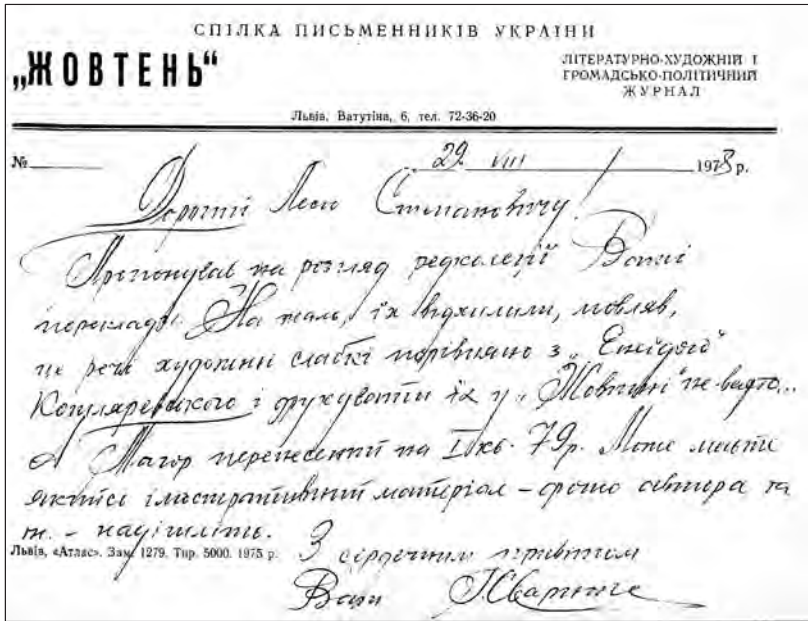 СПІЛКА ПИСЬМЕННИКІВ УКРАЇНИ
„ЖОВТЕНЬ“
ЛІТЕРАТУРНО-ХУДОЖНІЙ І
ГРОМАДСЬКО-ПОЛІТИЧНИЙ
ЖУРНАЛ
Львів, Ватутіна, 6, тел. 72-36-20
№ 29. VIII 1978 р.
Дорогий Лесю Степановичу!
Пропонував на розгляд редколегії Ваші
переклади. На жаль, їх відхилили, мовляв,
ці речі художньо слабкі порівняно з „Енеїдою“
Котляревського і друкувати їх у „Жовтні“ не варто...
А Тагор перенесений на I кв. 79 р. Може маєте
якийсь ілюстративний матеріал – фото автора та
ін. – надішліть.
Львів, «Атлас». Зам. 1279. Тир. 5000. 1975 р.
З сердечним привітом
Ваш